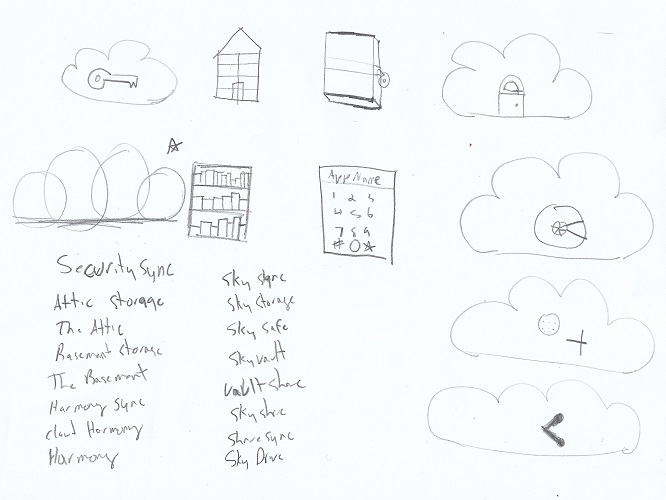 App Name
1 2 3
4 5 6
7 8 9
# 0 *
Security Sync
Attic Storage
The Attic
Basement Storage
The Basement
Harmony Sync
Cloud Harmony
Harmony
Sky Sync
Sky Storage
Sky Safe
Sky vault
vault Share
Sky Share
Share Sync
Sky Drive